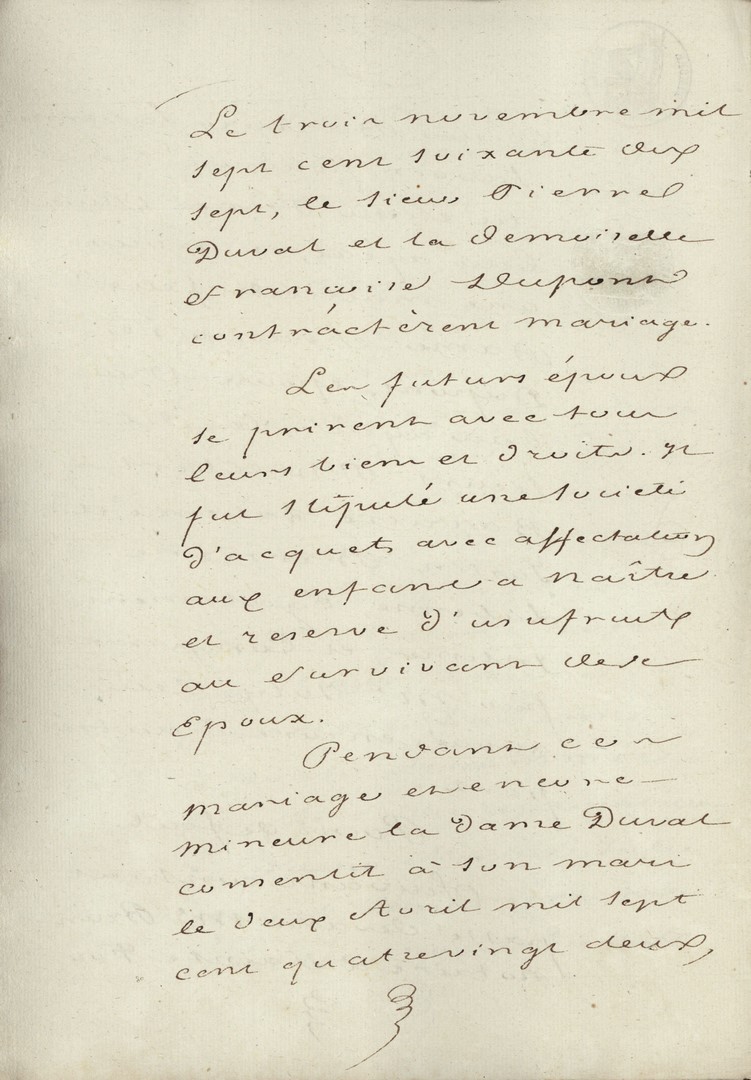 Le trois novembre mil
sept cent soixante dix
sept, le sieur Pierre
Duval et la demoiselle
Françoise Dupont
contractèrent mariage.
Les futurs époux
se prirent avec tous
leurs biens et droits. Il
fut stipulé une société
d'acquets avec affectation
aux enfans a naître
et reserve d'usufruit
au survivant des
Epoux.
Pendant ce
mariage et encore
mineure la dame Duval
consentit à son mari
le deux Avril mil sept
cent quatrevingt deux,